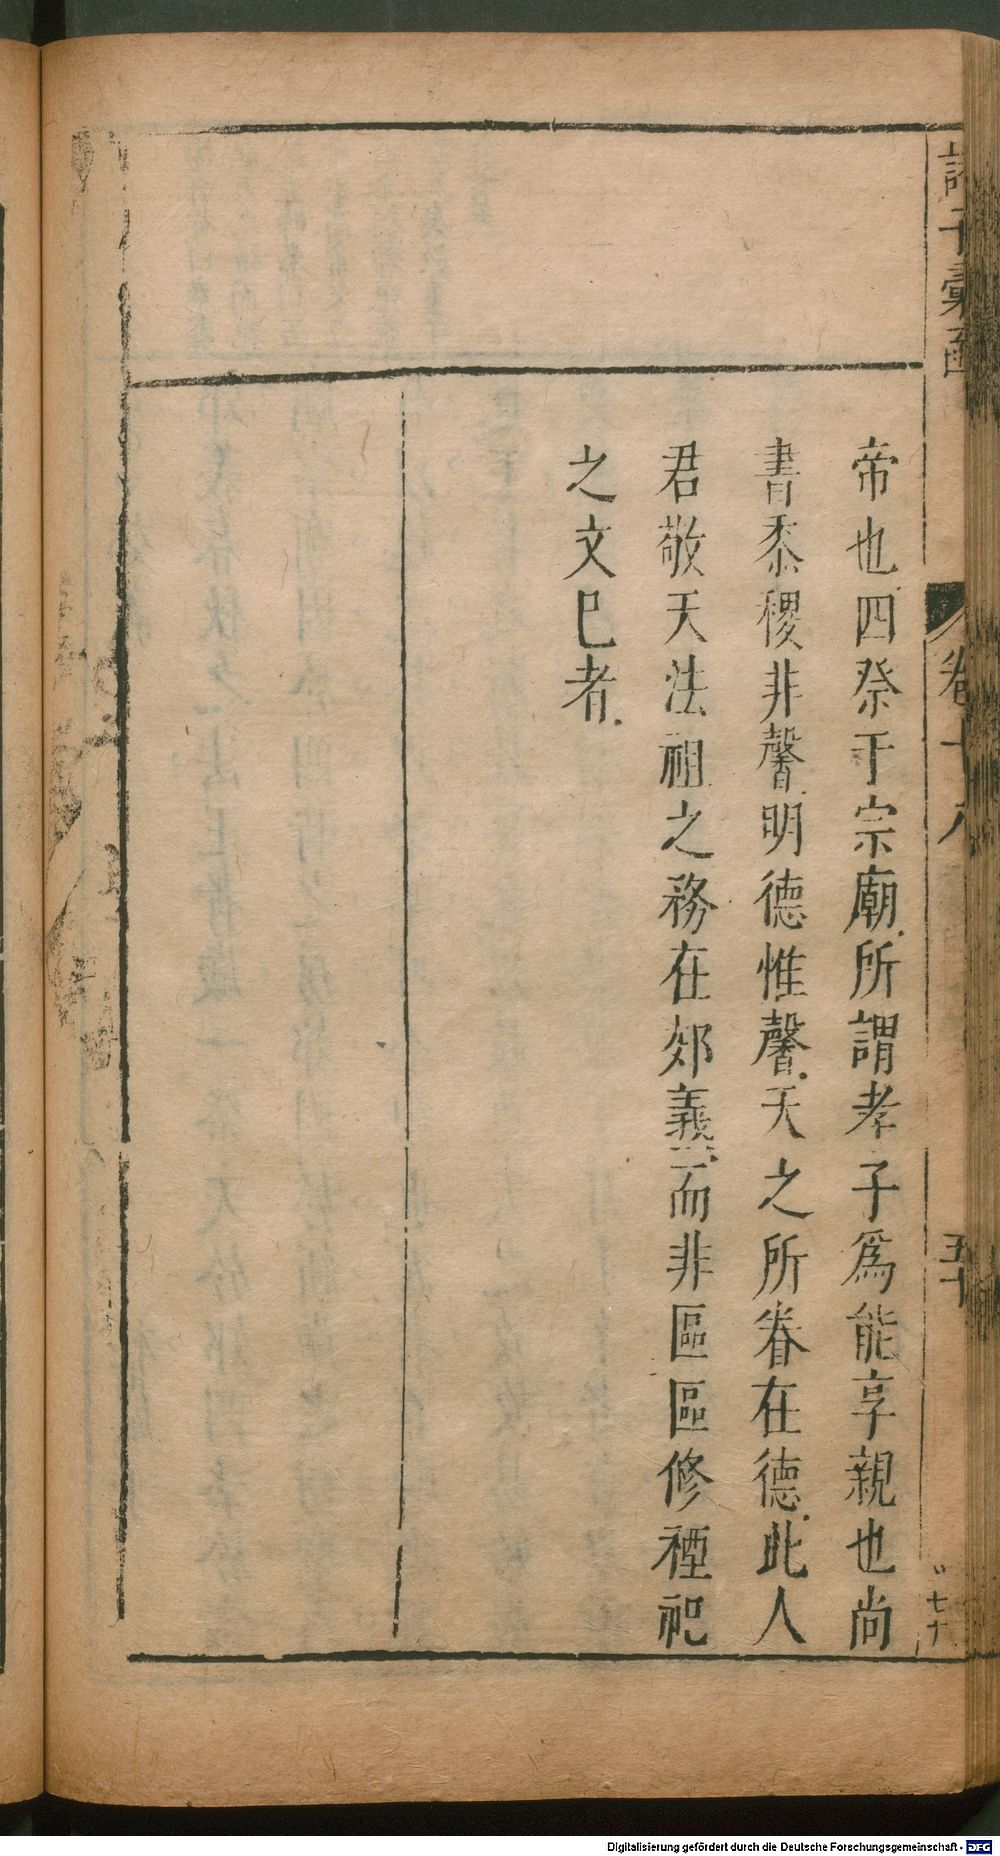 諸子彙函
卷十八
五十
七十
帝也四祭于宗廟所謂孝子爲能享親也尚
書黍稷非馨明德惟馨天之所眷在德此人
君敬天法祖之務在郊義而非區區修禋祀
之文巳者
Digitalisierung gefördert durch die Deutsche Forschungsgemeinschaft - DFG